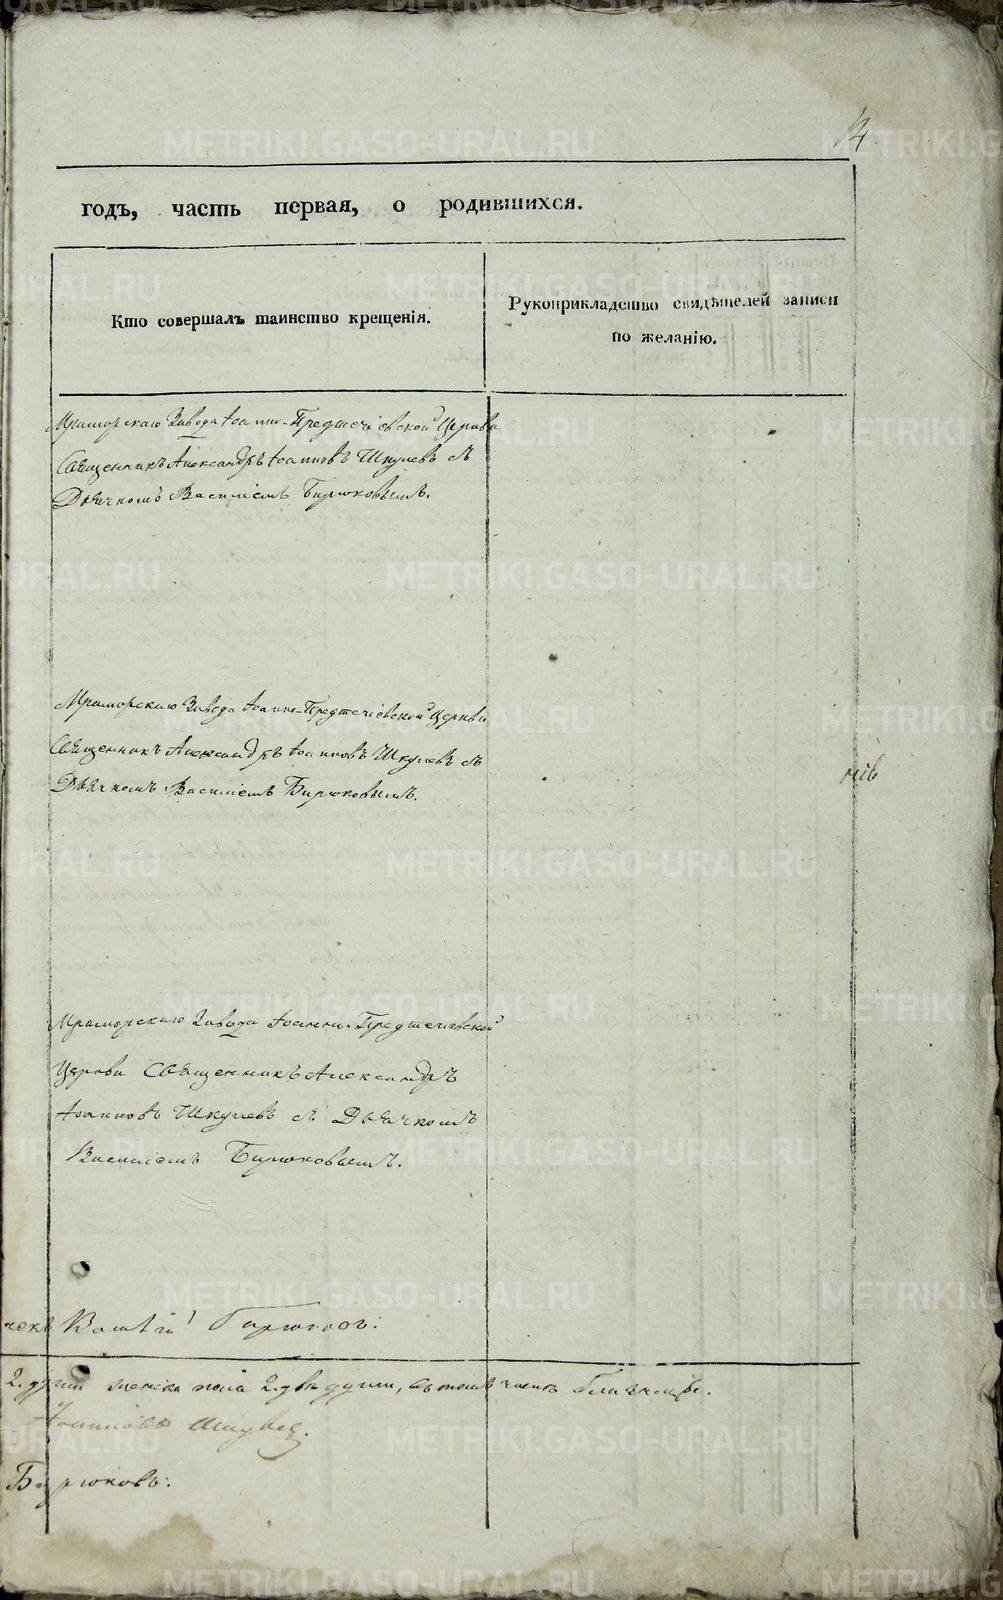 14.
годъ, часть первая, о родившихся.
Кто совершалъ таинство крещенія.
Рукоприкладство свидѣтелей записи
по желанію.
Мраморскаго Завода Іоанно-Предтечіевской Церкви
Священникъ Александръ Іоанновъ Шкулевъ съ
Дьячкомъ Василіемъ Бирюковымъ.
Мраморскаго Завода Іоанно-Предтечіевской Церкви
Священникъ Александръ Іоанновъ Шкулевъ съ
Дьячкомъ Василіемъ Бирюковымъ.
Мраморскаго Завода Іоанно-Предтечіевской
Церкви Священникъ Александръ
Іоанновъ Шкулевъ съ Дьячкомъ
Василіемъ Бирюковымъ.
Бирюковъ.
2. души женска пола 2. двѣ души, въ томъ числѣ
Бирюковъ.
METRIKI.GASO-URAL.RU